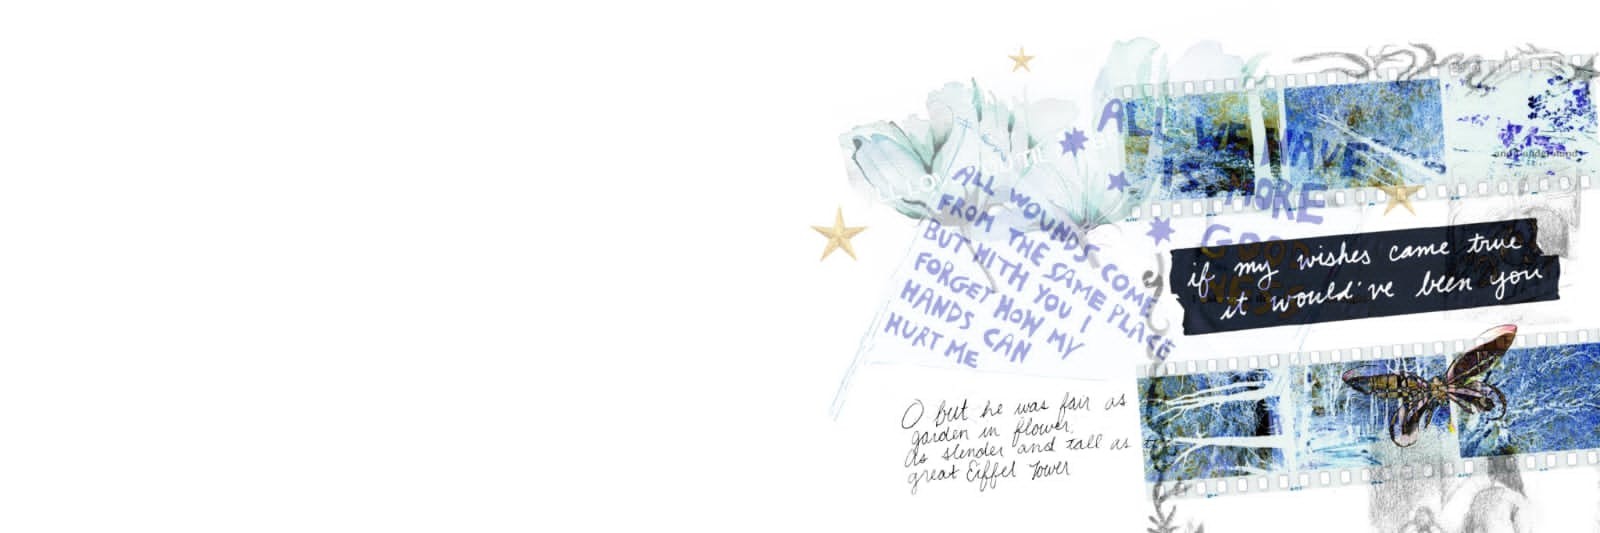 ALL WE HAVE
IS MORE
GOOD
NESS
ALL WOUNDS COME
FROM THE SAME PLACE
BUT WITH YOU I
FORGET HOW MY
HANDS CAN
HURT ME
if my wishes came true
it would've been you
O but he was fair as
garden in flower,
As slender and tall as t
great Eiffel Tower